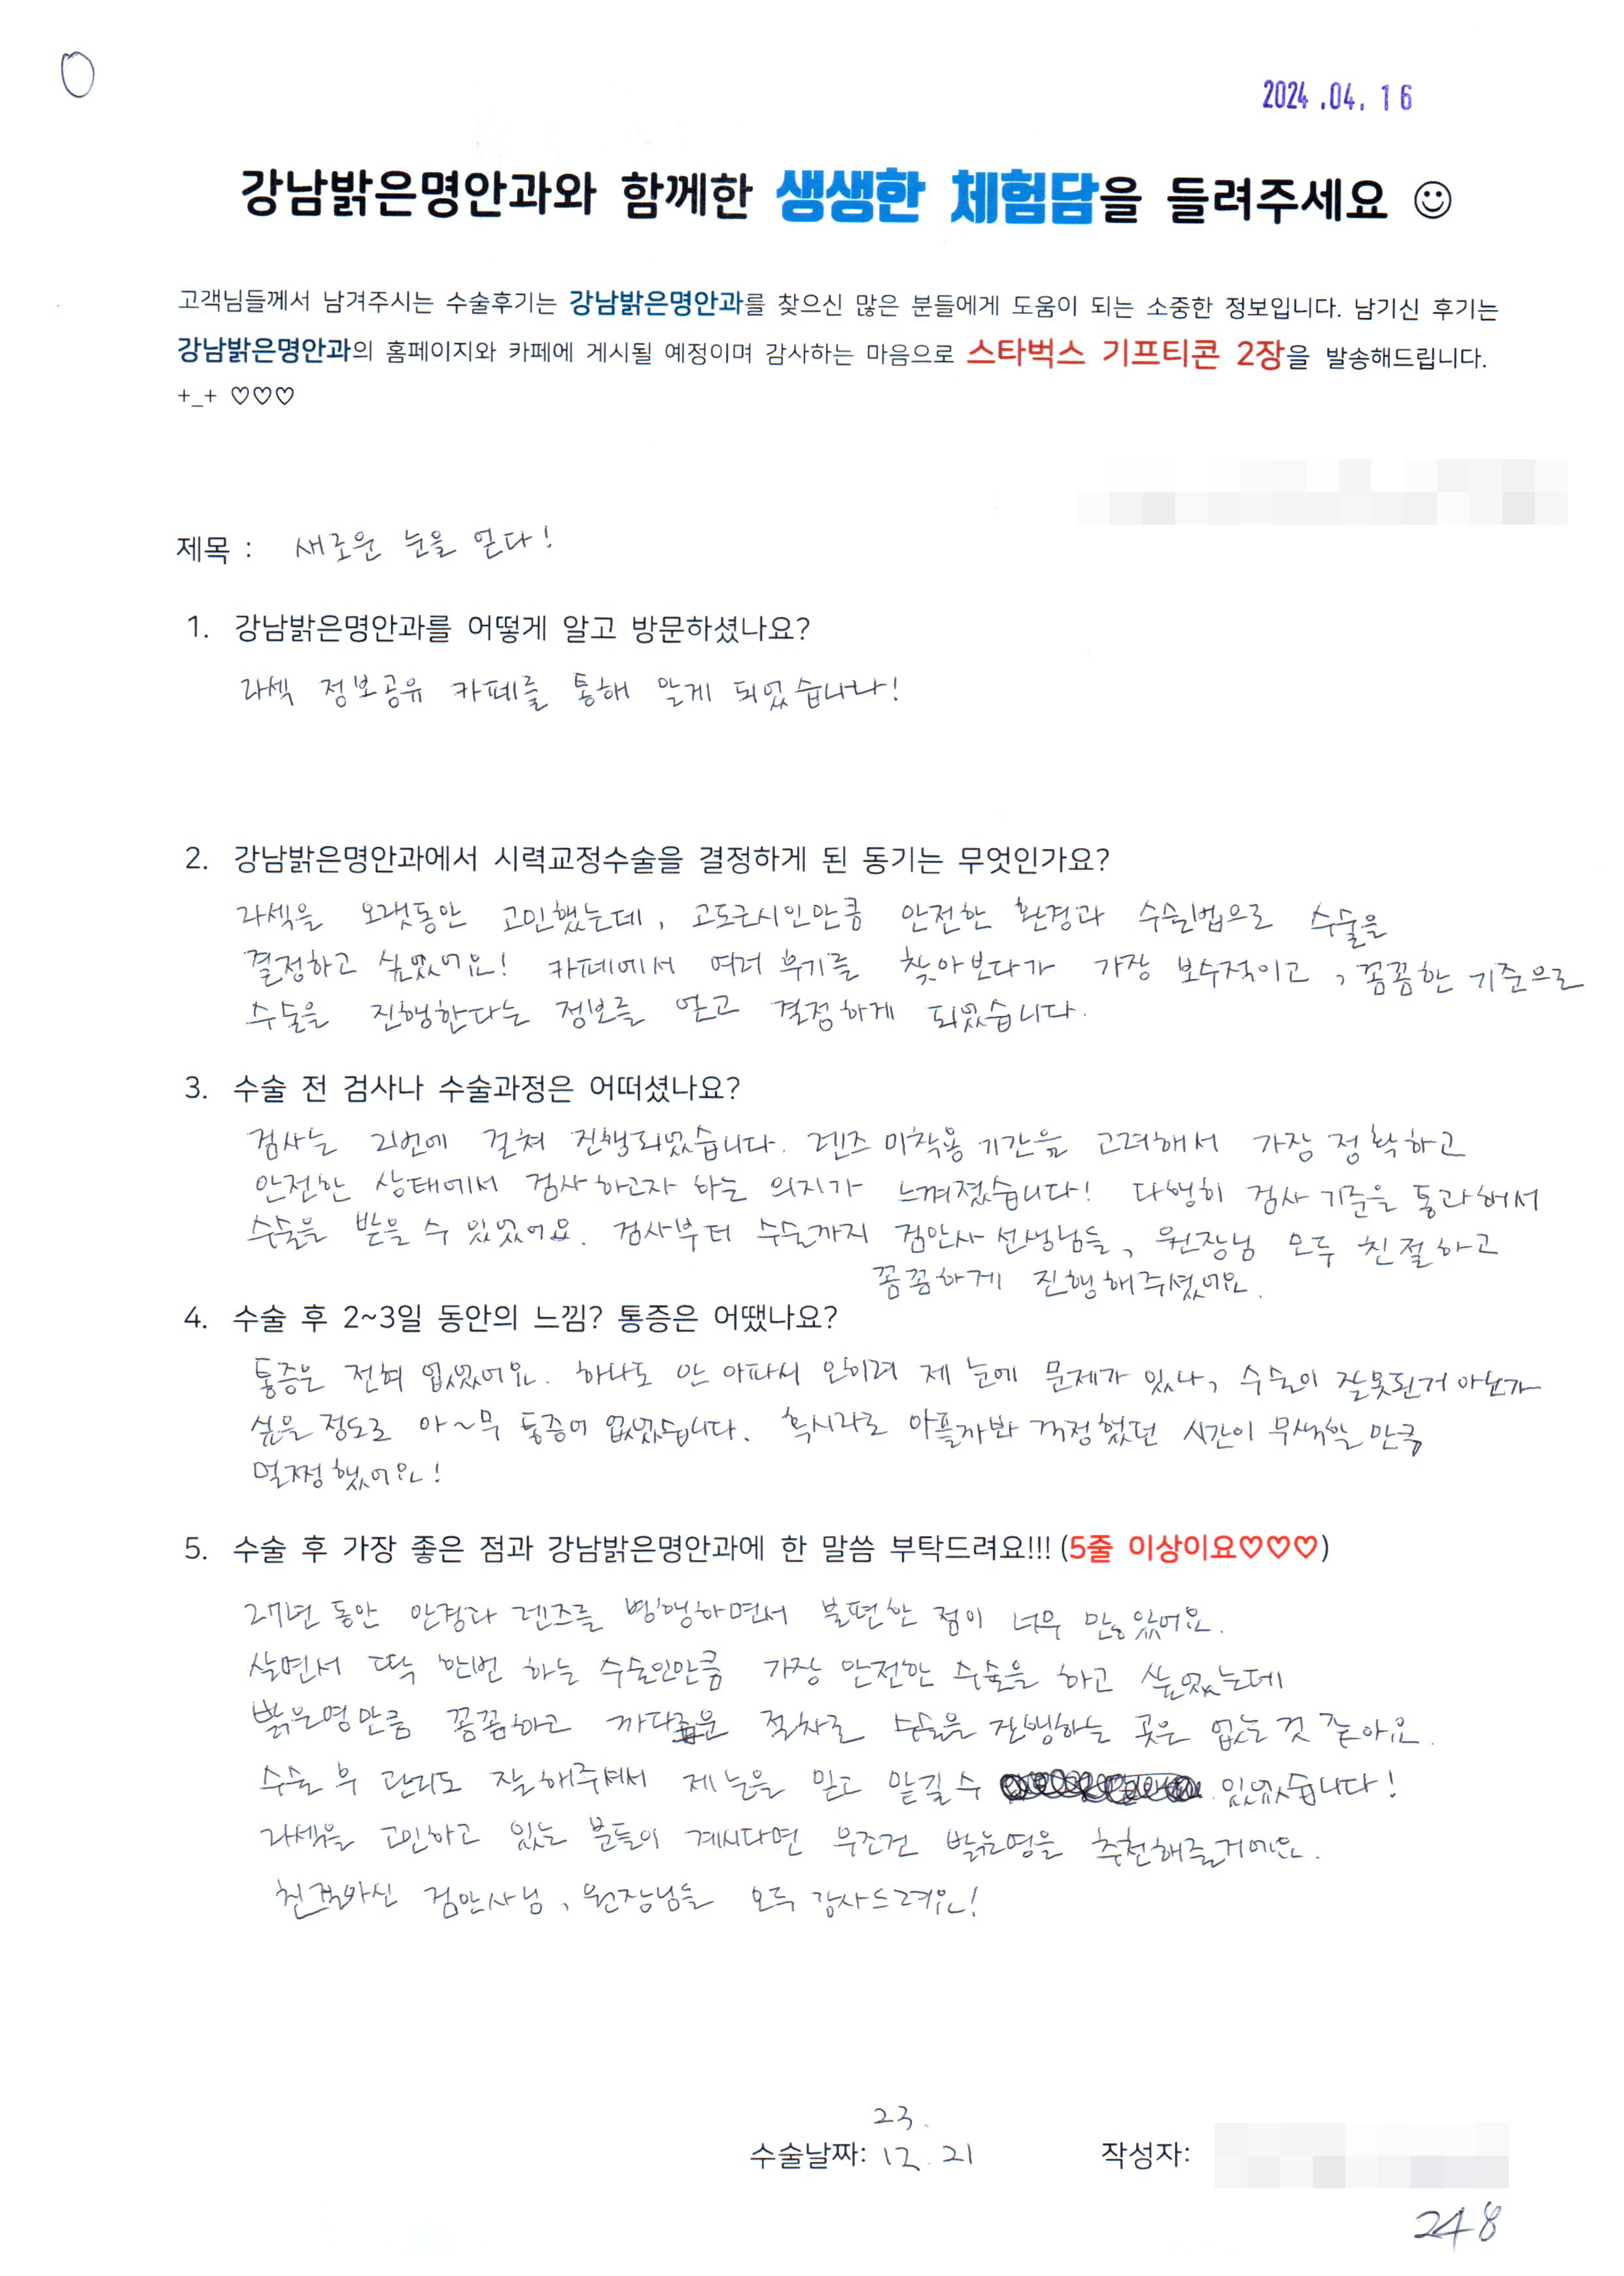 2024.04.16
강남밝은명안과와 함께한 생생한 체험담을 들려주세요 ☺
고객님들께서 남겨주시는 수술후기는 강남밝은명안과를 찾으신 많은 분들에게 도움이 되는 소중한 정보입니다. 남기신 후기는
강남밝은명안과의 홈페이지와 카페에 게시될 예정이며 감사하는 마음으로 스타벅스 기프티콘 2장을 발송해드립니다.
+_+ ♡♡♡
제목 : 새로운 눈을 얻다!
1. 강남밝은명안과를 어떻게 알고 방문하셨나요?
라섹 정보공유 카페를 통해 알게 되었습니다!
2. 강남밝은명안과에서 시력교정수술을 결정하게 된 동기는 무엇인가요?
라섹을 오랫동안 고민했는데, 고도근시인만큼 안전한 환경과 수술법으로 수술을
결정하고 싶었어요! 카페에서 여러 후기를 찾아보다가 가장 보수적이고, 꼼꼼한 기준으로
수술을 진행한다는 정보를 얻고 결정하게 되었습니다.
3. 수술 전 검사나 수술과정은 어떠셨나요?
검사는 2번에 걸쳐 진행되었습니다. 렌즈 미착용 기간을 고려해서 가장 정확하고
안전한 상태에서 검사하고자 하는 의지가 느껴졌습니다! 다행히 검사 기준을 통과해서
수술을 받을 수 있었어요. 검사부터 수술까지 검안사 선생님들, 원장님 모두 친절하고
꼼꼼하게 진행해주셨어요.
4. 수술 후 2~3일 동안의 느낌? 통증은 어땠나요?
통증은 전혀 없었어요. 하나도 안 아파서 오히려 제 눈에 문제가 있나, 수술이 잘못된거 아닌가
싶을 정도로 아~무 통증이 없었습니다. 혹시라도 아플까봐 걱정했던 시간이 무색할 만큼
멀쩡했어요!
5. 수술 후 가장 좋은 점과 강남밝은명안과에 한 말씀 부탁드려요!!! (5줄 이상이요♡♡♡)
27년 동안 안경과 렌즈를 병행하면서 불편한 점이 너무 많았어요.
살면서 딱 한번 하는 수술인만큼 가장 안전한 수술을 하고 싶었는데
밝은명만큼 꼼꼼하고 까다로운 절차로 수술을 진행하는 곳은 없는 것 같아요.
수술 후 관리도 잘해주셔서 제 눈을 믿고 맡길 수 있었습니다!
라섹을 고민하고 있는 분들이 계시다면 무조건 밝은명을 추천해줄거에요.
친절하신 검안사님, 원장님들 모두 감사드려요!
23.
수술날짜: 12.21 작성자:
248